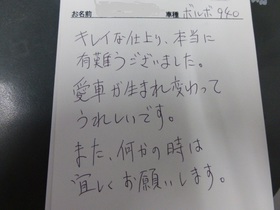 お名前 車種 ボルボ940
キレイな仕上り、本当に
有難うございました。
愛車が生まれ変わって
うれしいです。
また、何かの時は
宜しくお願いします。